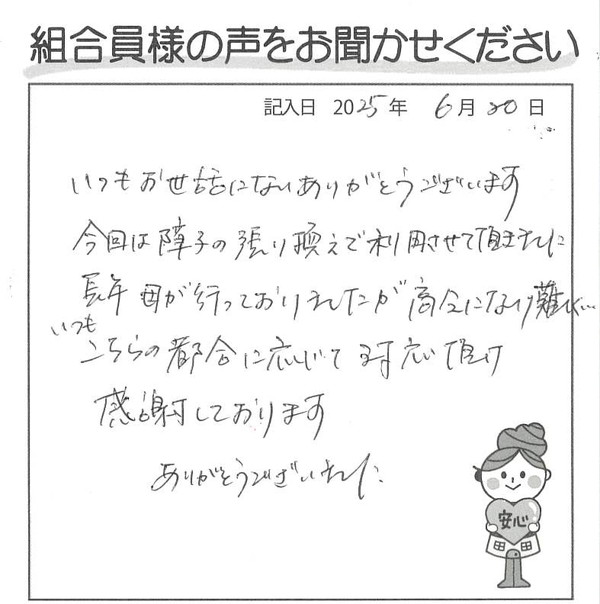 組合員様の声をお聞かせください
記入日 2025年 6月20日
いつもお世話になりありがとうございます
今回は障子の張り換えで利用させて頂きました
長年 母が行っておりましたが 高令になり難しく…
いつも
こちらの都合に応じて 対応 頂け
感謝しております
ありがとうございました
安心